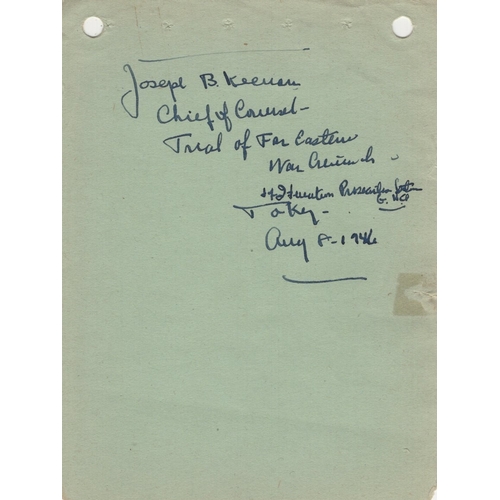 Joseph B. Keenan
Chief of Counsel -
Trial of Far Eastern
War Criminals
Prosecution Section
G.H.Q
Tokyo -
Aug 8 - 1946